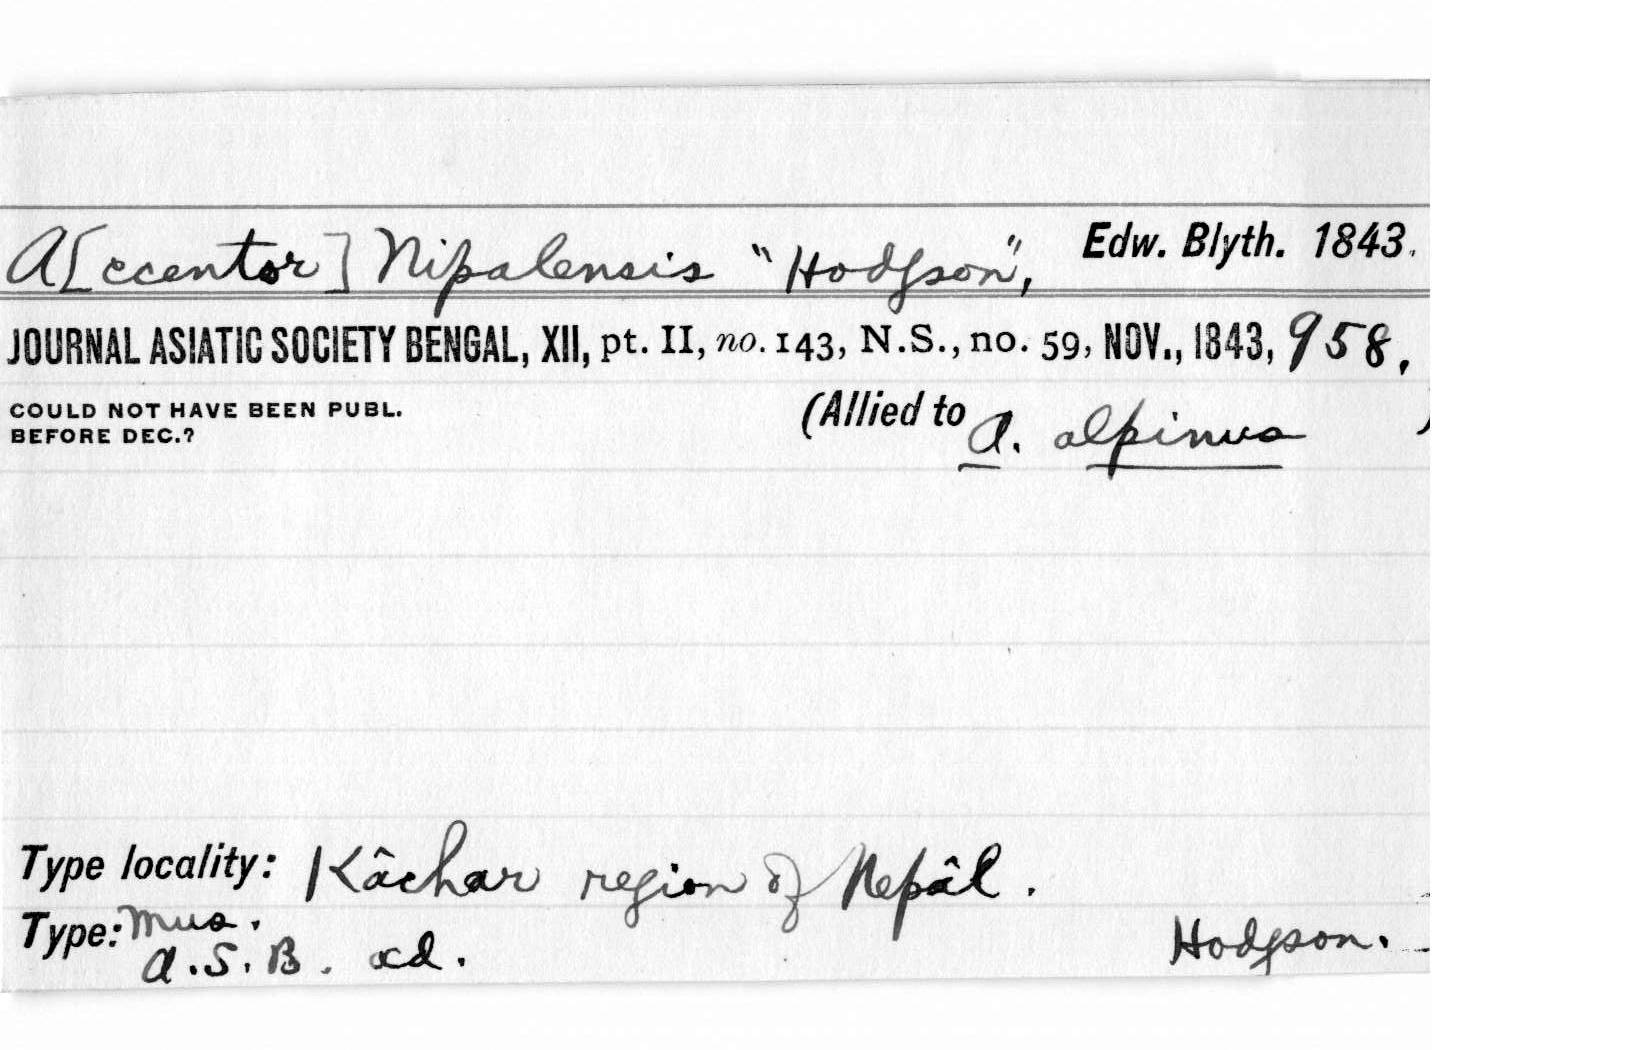 A[ccentor] Nipalensis "Hodgson", Edw. Blyth. 1843.
JOURNAL ASIATIC SOCIETY BENGAL, XII, pt. II, no. 143, N.S., no. 59, NOV., 1843, 958.
COULD NOT HAVE BEEN PUBL.
BEFORE DEC.?
(Allied to A. alpinus )
Type locality: Kâchar region of Nepâl.
Type: Mus.
A.S.B. ad. Hodgson.